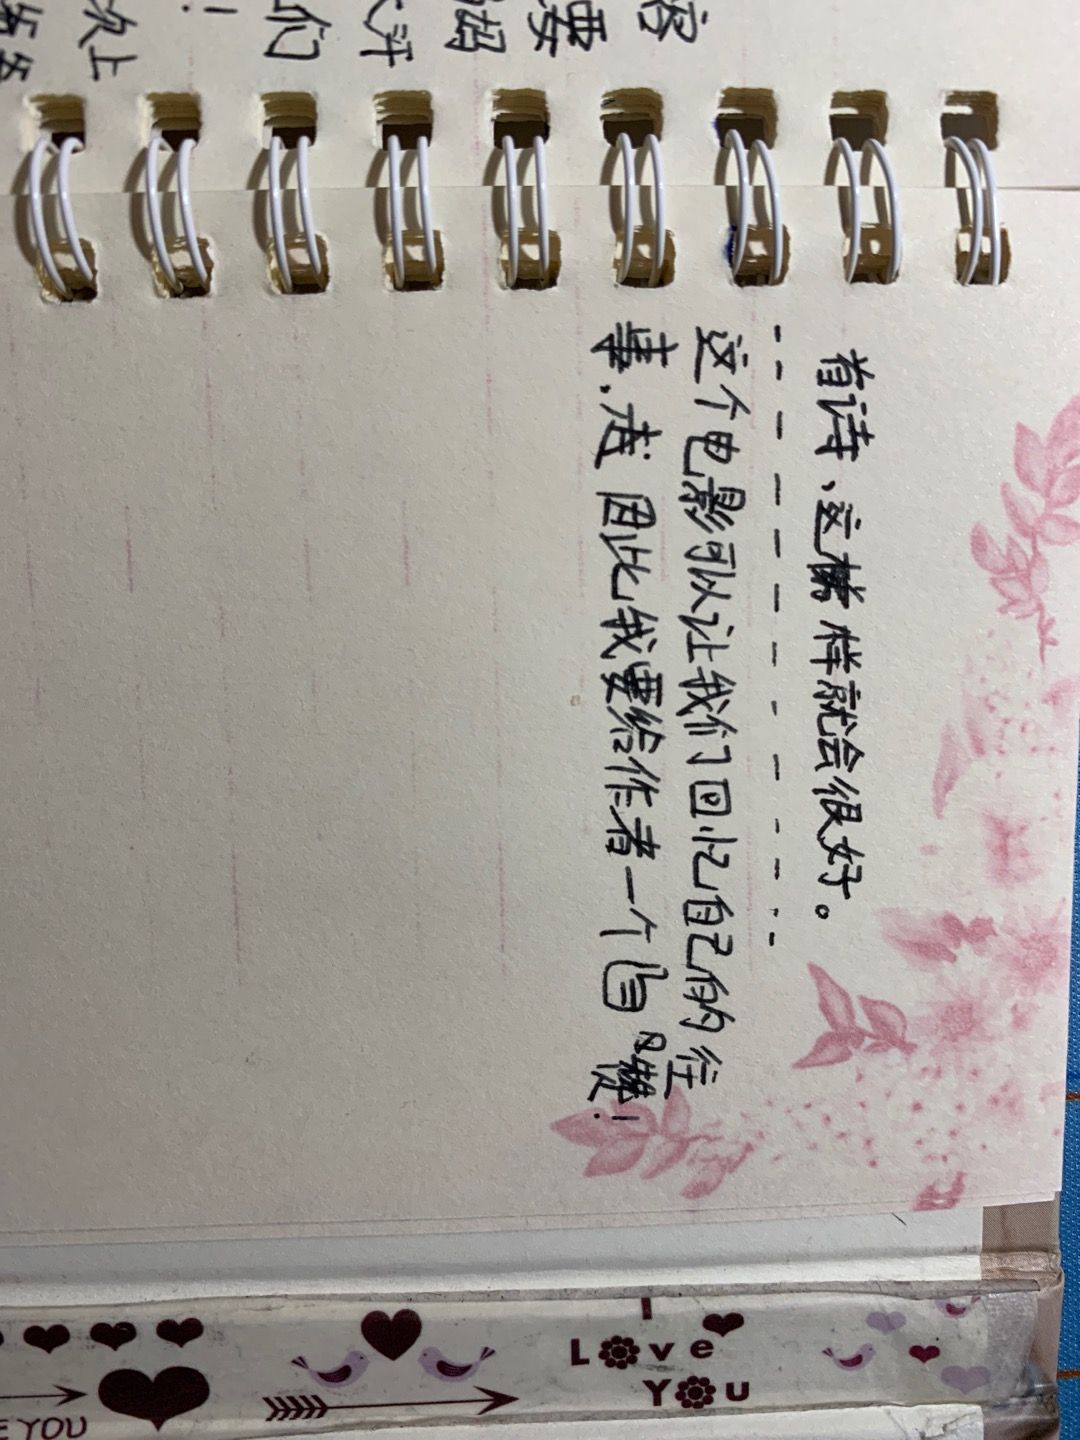 首诗、这样就会很好。
这个电影可以让我们回忆自己的往
事、 因此我要给作者一个
容
要
胡
汗
们
！
次上
I
Love
YOU
E YOU